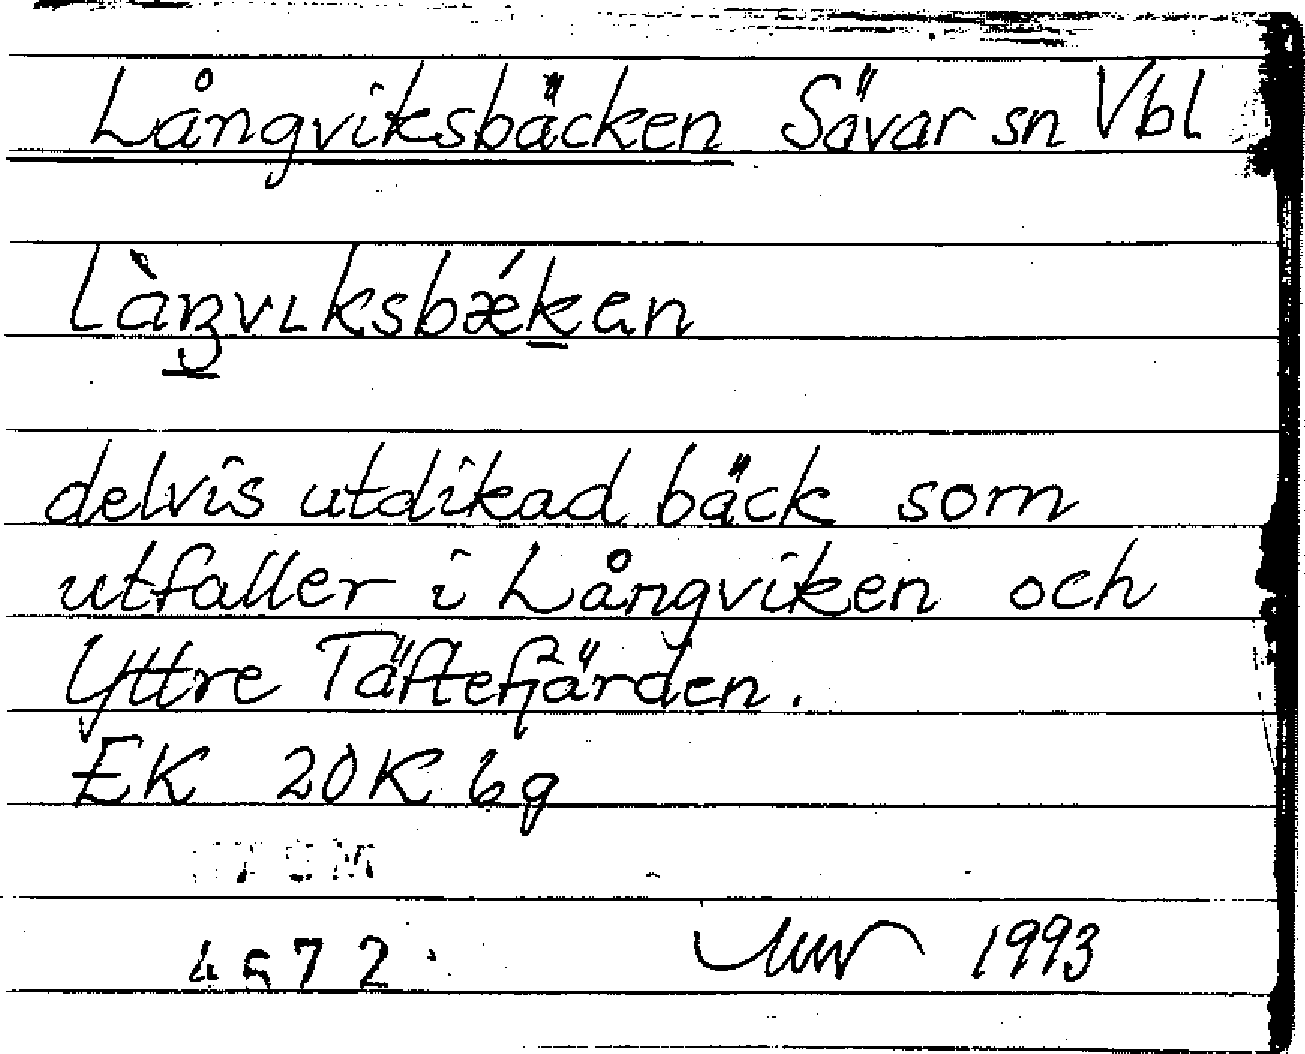 Långviksbäcken Sävar sn Vbl
delvis utdikad bäck som
utfaller i Långviken och
Yttre Täftefjärden.
EK 20K 6g
4572
1993